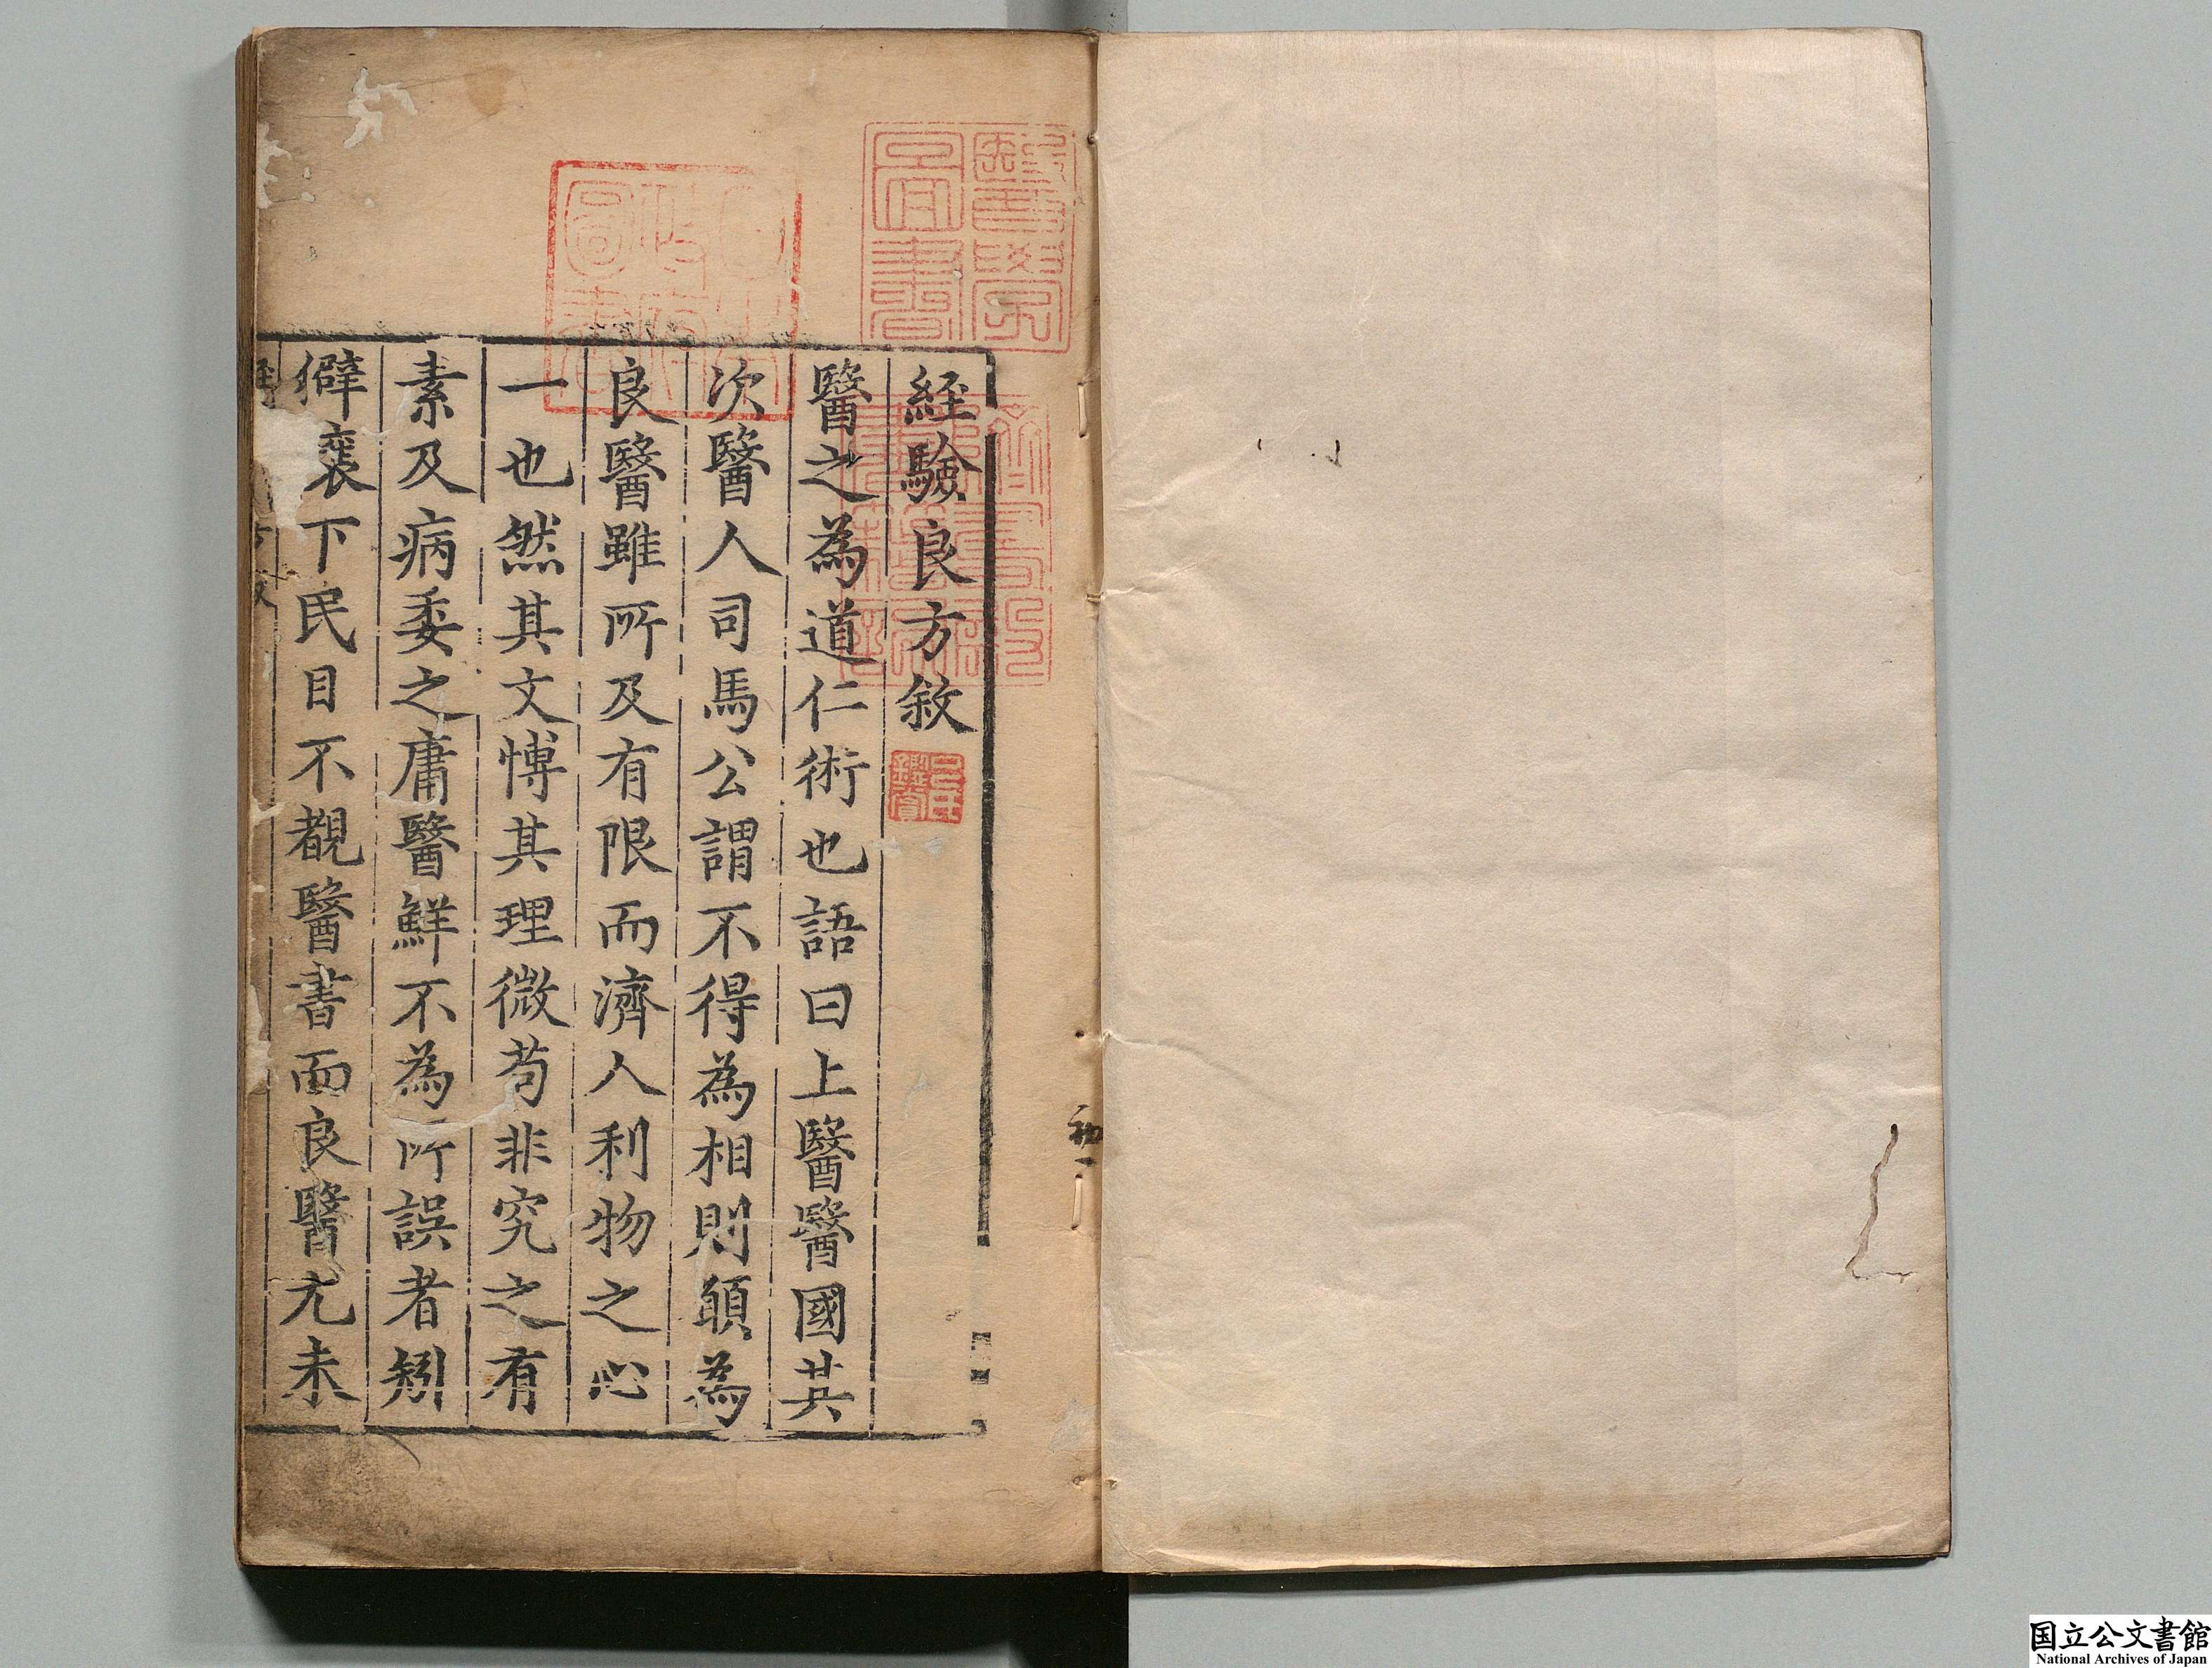 經驗良方敘
醫之為道仁術也語曰上醫醫國其
次醫人司馬公謂不得為相則願為
良醫雖所及有限而濟人利物之心
一也然其文博其理微苟非究之有
素及病委之庸醫鮮不為所誤者矧
僻裔下民目不覩醫書而良醫尤未
醫學圖書
国立公文書館
National Archives of Japan